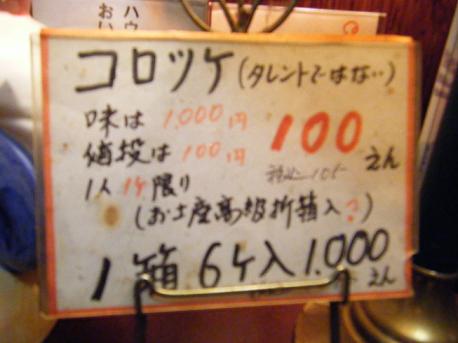 ハウ
おい
コロッケ(タレントではない‥)
味は1,000円
値段は100円
100えん
税込105
1人1ケ限り
(お土産高級折箱入?)
1箱6ケ入1.000えん